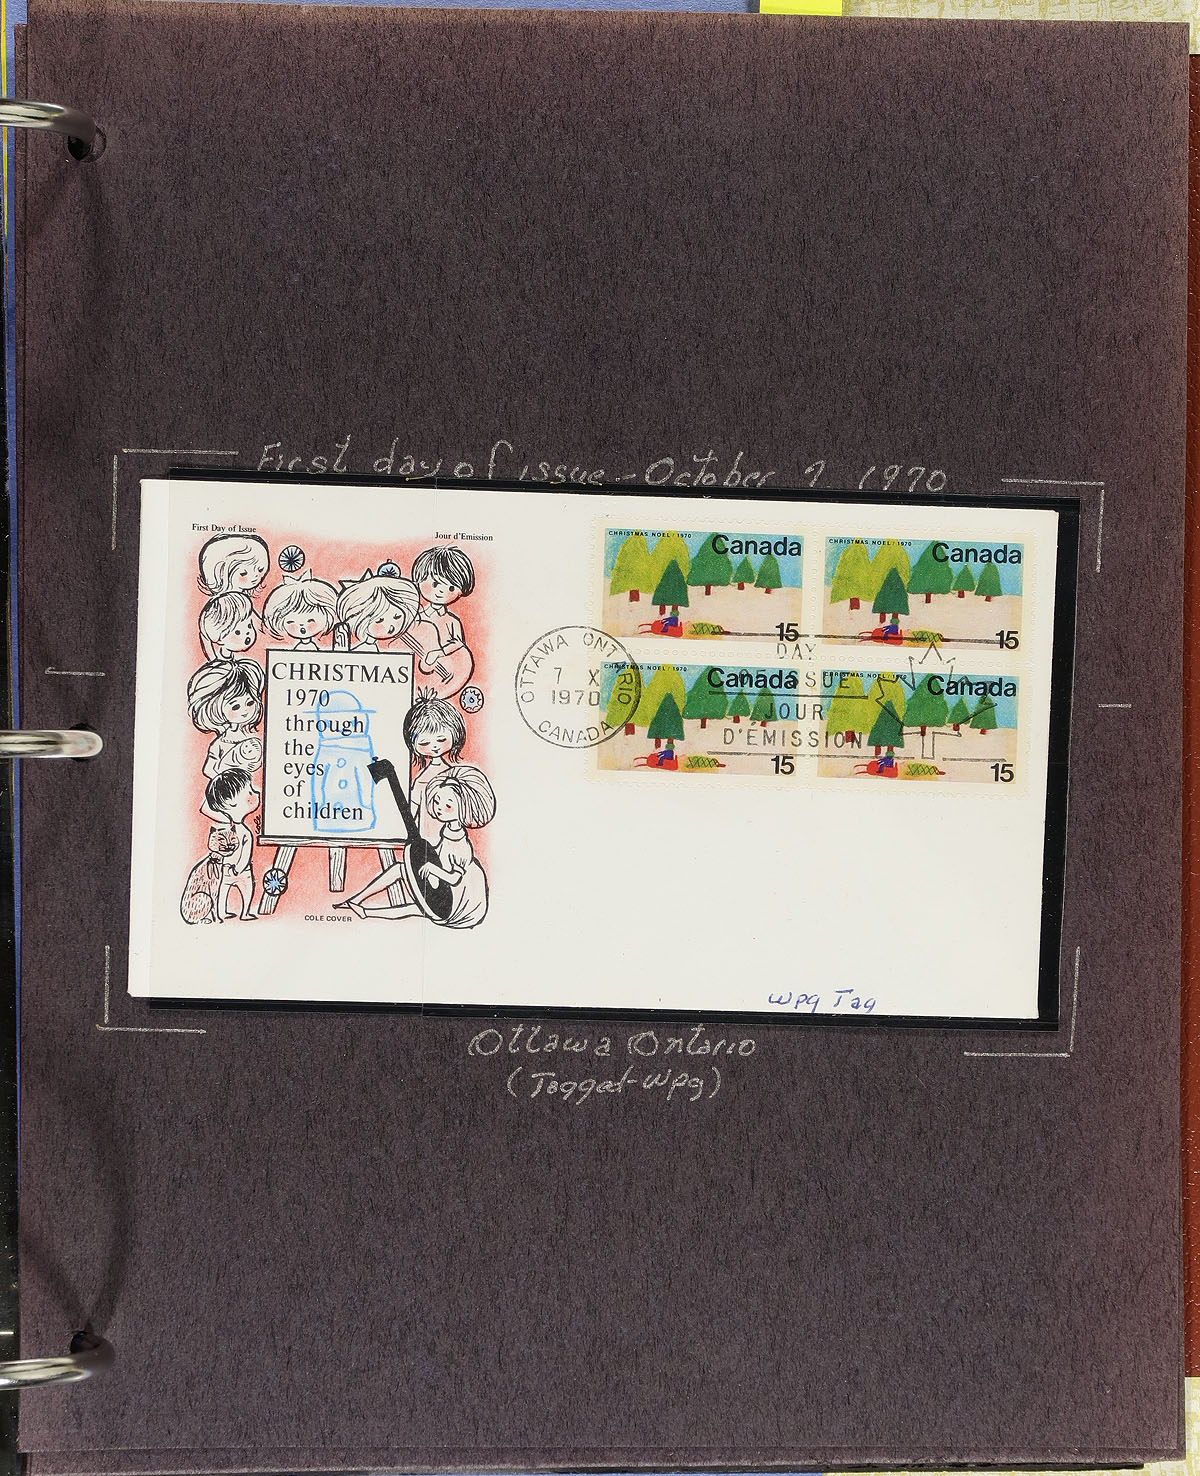 First day of issue - October 7, 1970
First Day of Issue
Jour d'Emission
CHRISTMAS
1970
through
the
eyes
of
children
cole
COLE COVER
CHRISTMAS NOEL / 1970
Canada
15
CHRISTMAS NOEL / 1970
Canada
15
CHRISTMAS NOEL / 1970
Canada
15
CHRISTMAS NOEL / 1970
Canada
15
OTTAWA ONTARIO
7 X
1970
CANADA
DAY
OF ISSUE
JOUR
D'EMISSION
Wpg Tag
Ottawa Ontario
(Tagged-Wpg)